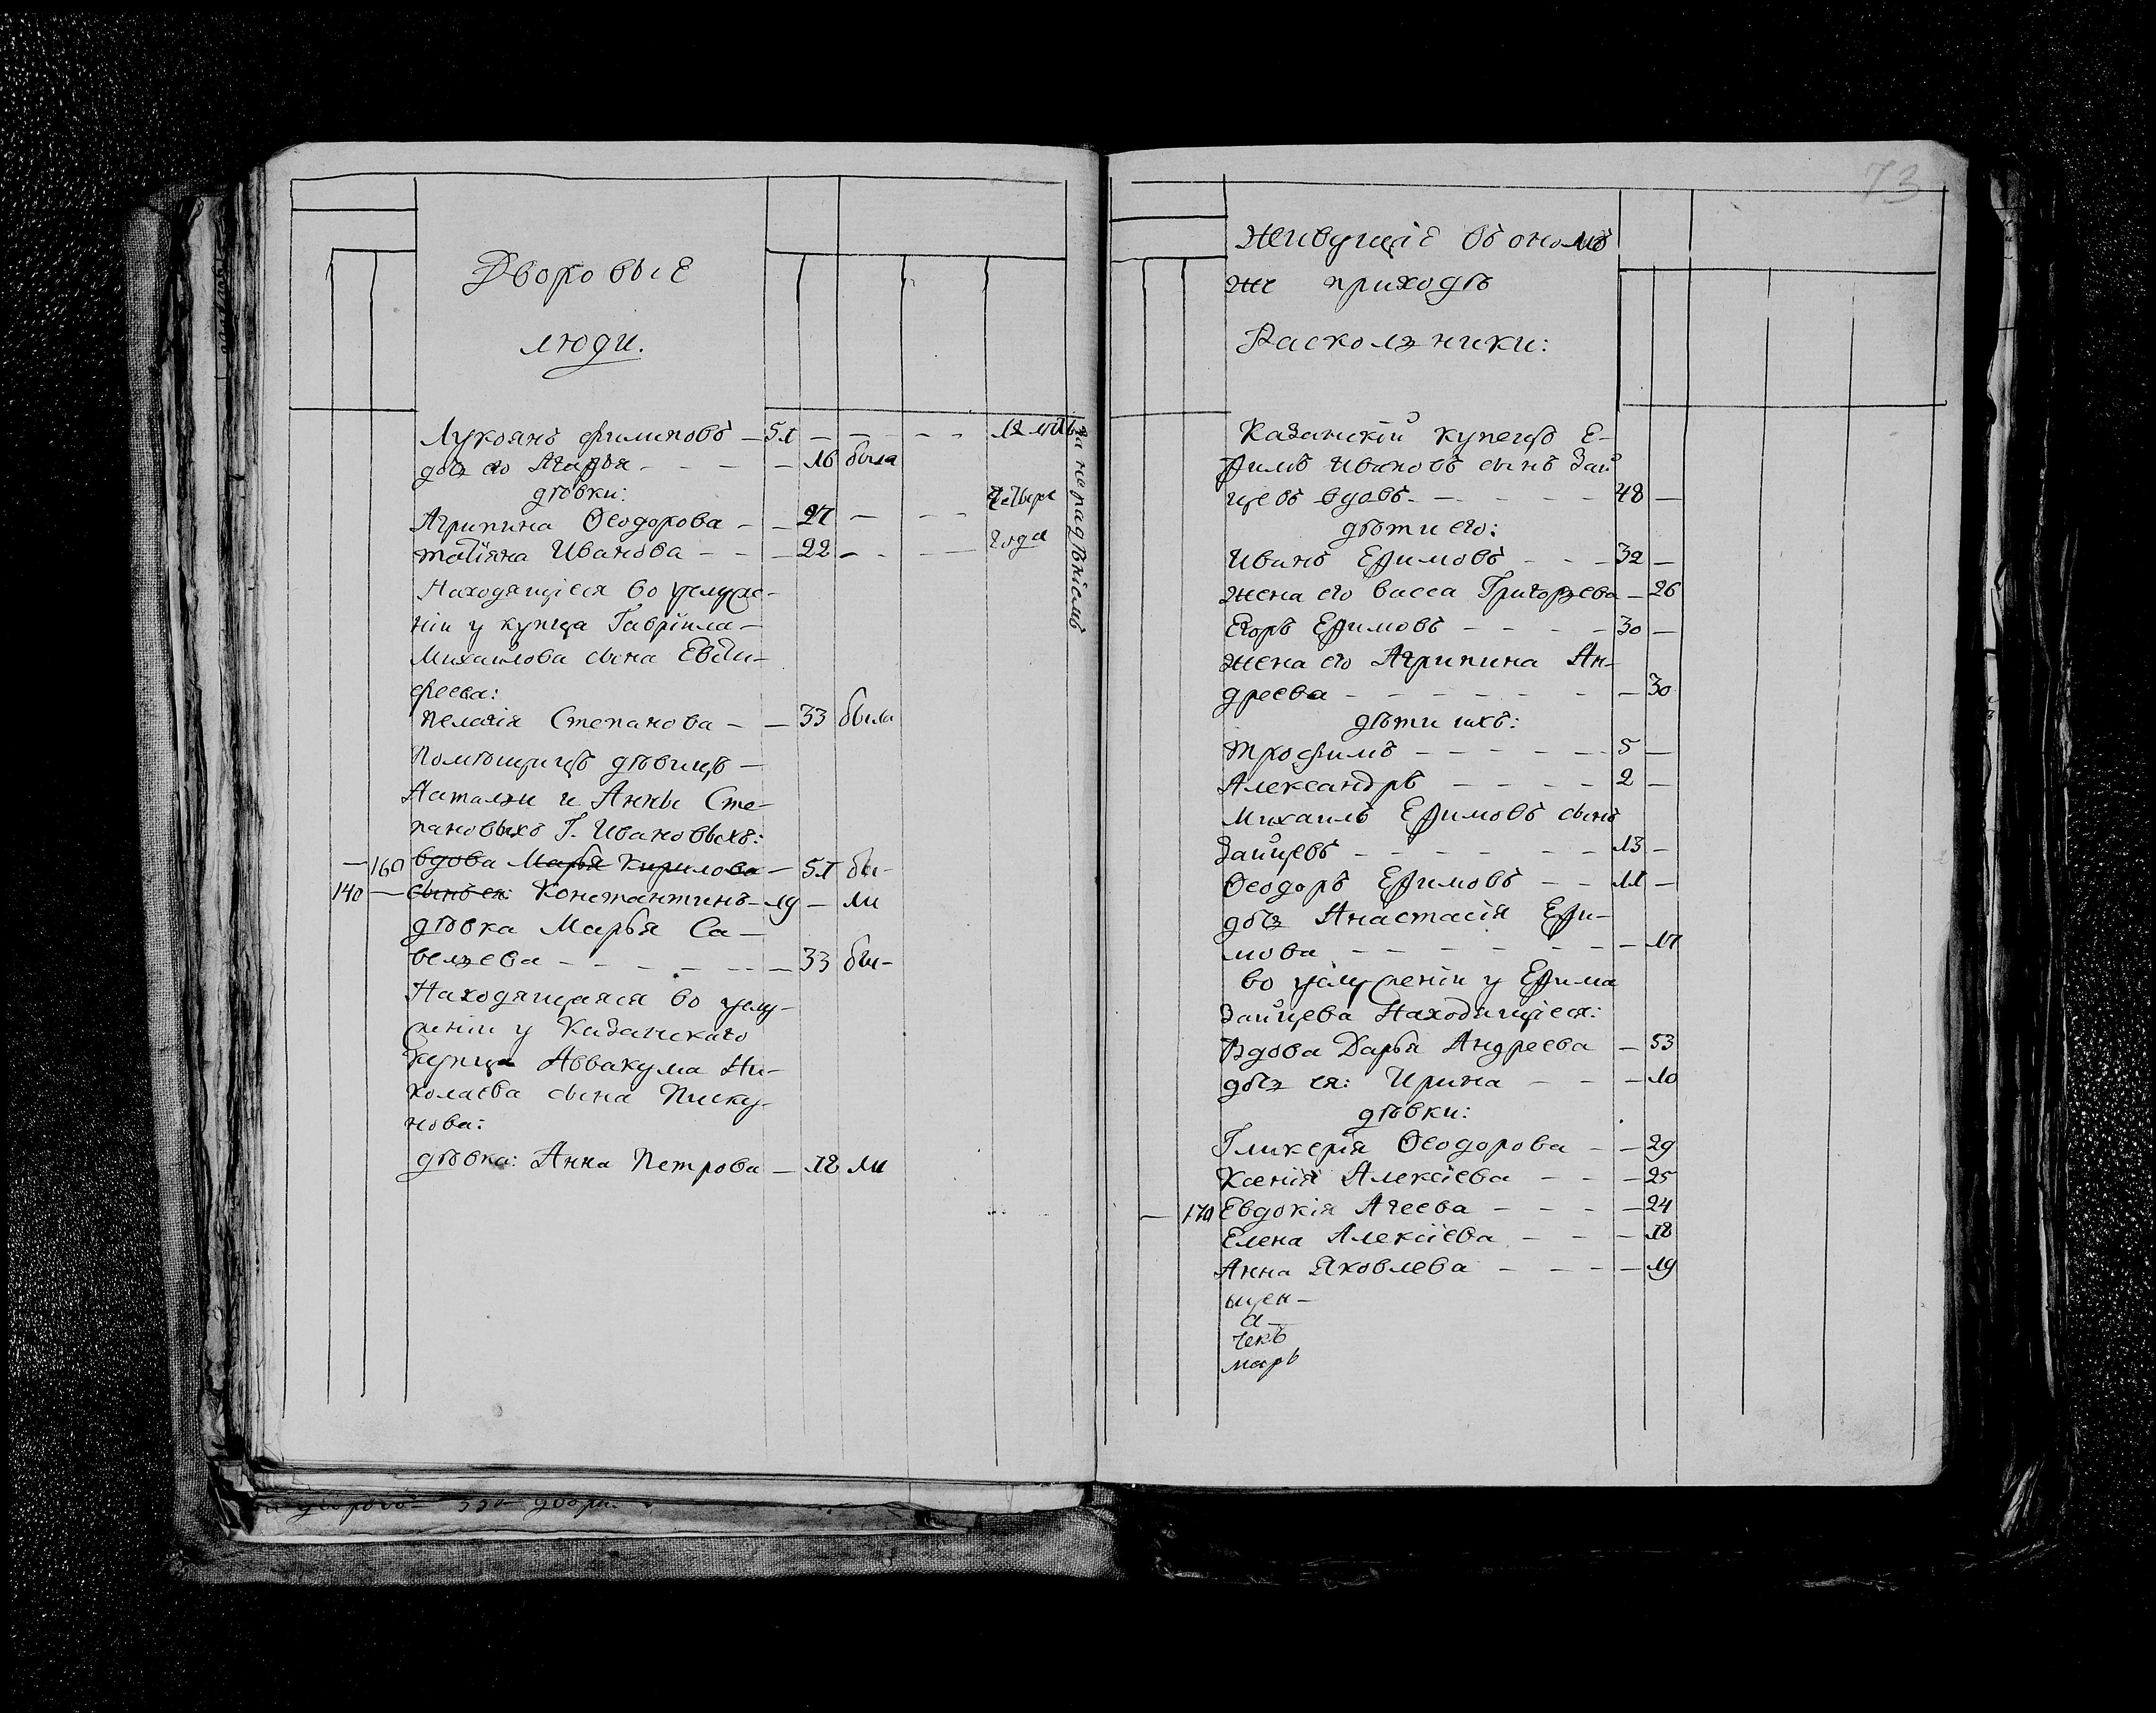 Дворовые
люди.
Лукоянъ Филиповъ — 51 — — — — 12 лѣтъ
дочь его Агафья — — — — 16 была
дѣвки:
Агрипина Ѳеодорова — — 27 — — — четыре
татїяна Иванова — — — 22 — — — года
за нерадѣніемъ
Находящіеся во услуже-
ніи у купца Гавріила
Михаилова сына Евѳи-
феева:
пелагія Степанова — — 33 была
Помѣщицъ дѣвицъ —
Натальи и Анны Сте-
пановыхъ Г. Ивановыхъ:
— 160 вдова Марья Кирилова — 51 бы-
140 — сынъ ея: Константинъ — 19 — ли
дѣвка Марья Са-
вельева — — — — — — 33 бы-
Находящаяся во услу-
женіи у Казанскаго
купца Аввакума Ни-
колаева сына Писку-
нова:
дѣвка: Анна Петрова — 18 ли
73
Живущіе въ ономъ
же приходѣ
Раскольники:
Казанскій купецъ Е-
фимъ Ивановъ сынъ Зай
цевъ вдовъ — — — — 48 —
дѣти его:
Иванъ Ефимовъ — — — 32 —
жена его васса Григорьева — 26
Егоръ Ефимовъ — — — — 30 —
жена его Агрипина Ан-
дреева — — — — — — — 30
дѣти ихъ:
трофимъ — — — — — — 5 —
Александръ — — — — 2 —
Михаилъ Ефимовъ сынъ
Зайцевъ — — — — — — 13 —
Ѳеодоръ Ефимовъ — — 11 —
дочь Анастасія Ефи-
мова — — — — — — — 17
во услуженіи у Ефима
Зайцева Находящіеся:
Вдова Дарья Андреева — 53
дочь ея: Ирина — — — 10
дѣвки:
Гликерія Ѳеодорова — — 29
Ксенія Алексіева — — — 25
— 170 Евдокія Агеева — — — — 24
Елена Алексіева — — — 18
Анна Яковлева — — — — 19
ыщен —
а —
чекъ
марь